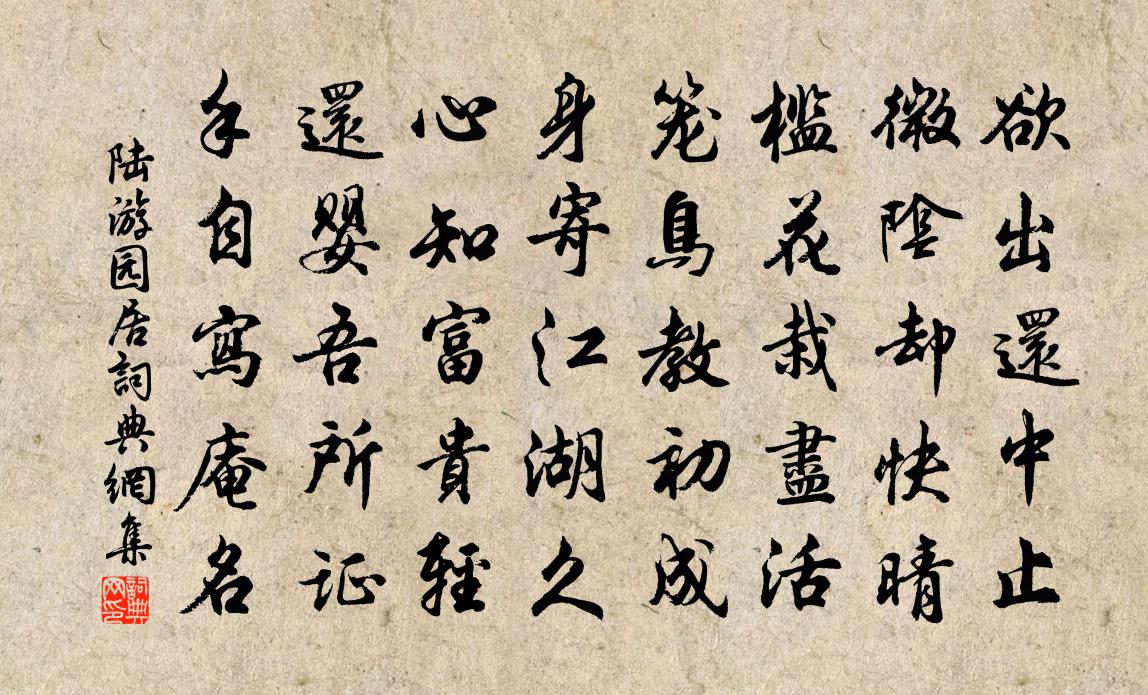 欲出還中止
微陰却快晴
檻花栽盡活
笼鳥教初成
身寄江湖久
心知富貴輕
還嬰吾所证
手自寫庵名
陆游园居詞典網集
詞典网印